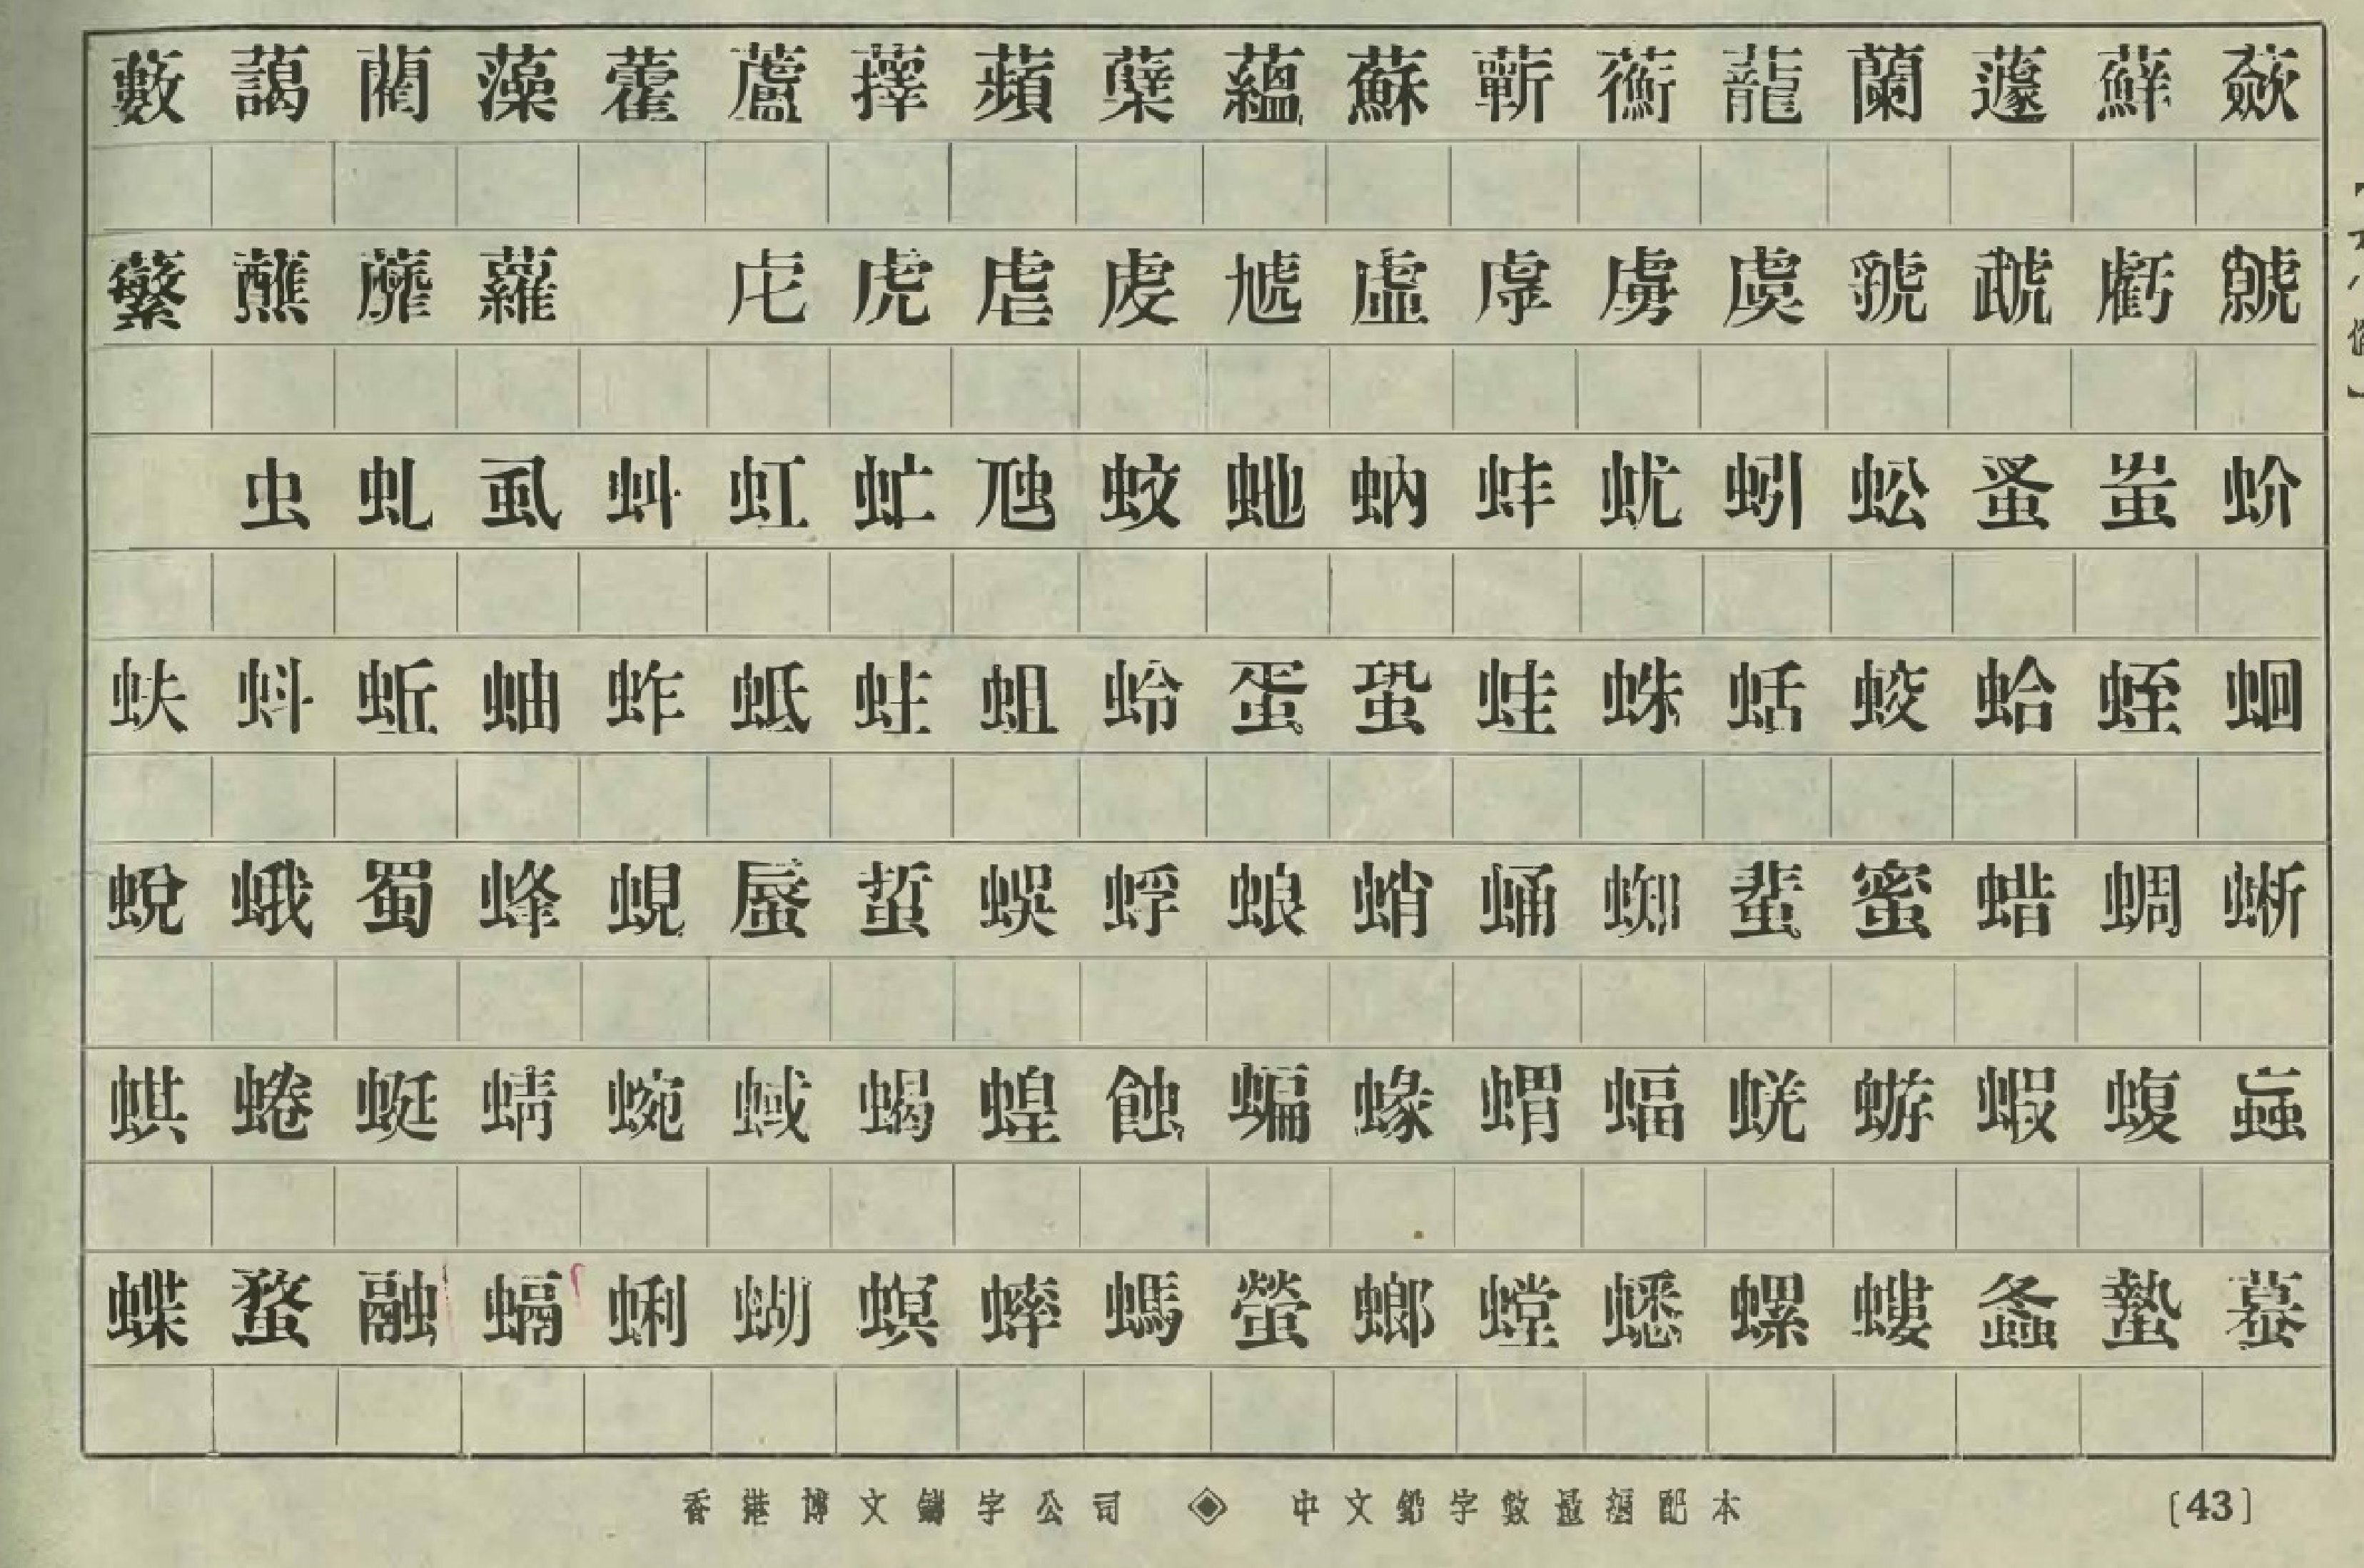 藪藹藺藻藿蘆蘀蘋蘖蘊蘇蘄蘅蘢蘭蘧蘚蘞
蘩蘸蘼蘿 虍虎虐虔虓虛虖虜虞號虣虧虩
虫虬虱虯虹虻虺蚊虵蚋蚌蚘蚓蚣蚤蚩蚧
蚨蚪蚯蚰蚱蚳蛀蛆蛉蛋蛩蛙蛛蛞蛟蛤蛭蛔
蛻蛾蜀蜂蜆蜃蜇蜈蜉蜋蛸蛹蜘蜚蜜蜡蜩蜥
蜞蜷蜓蜻蜿蜮蝎蝗蝕蝙蝝蝟蝠蜣蝣蝦蝮蝱
蝶蝥融蝸蜊蝴螟蟀螞螢螂螳蟋螺螻螽蟄蟇
香港博文鑄字公司 ◈ 中文鉛字數量搭配本 [43]